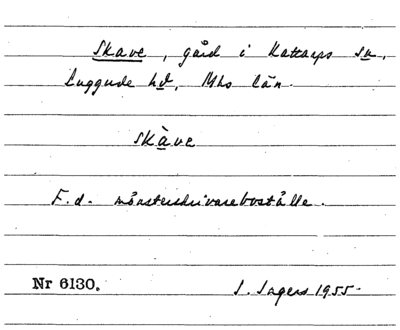 Skave, gård i Kattarps sn,
Luggude hd, Mhs län.
skàve
F.d. mönsterskrivareboställe.
Nr 6130.
I. Ingers 1955